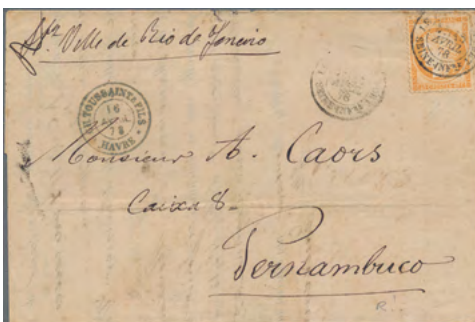 Ville de Rio de Janeiro
TOUSSAINT & FILS
16
78
HAVRE
AVRIL
78
Monsieur A. Caors
Caixa 8
Pernambuco
R.